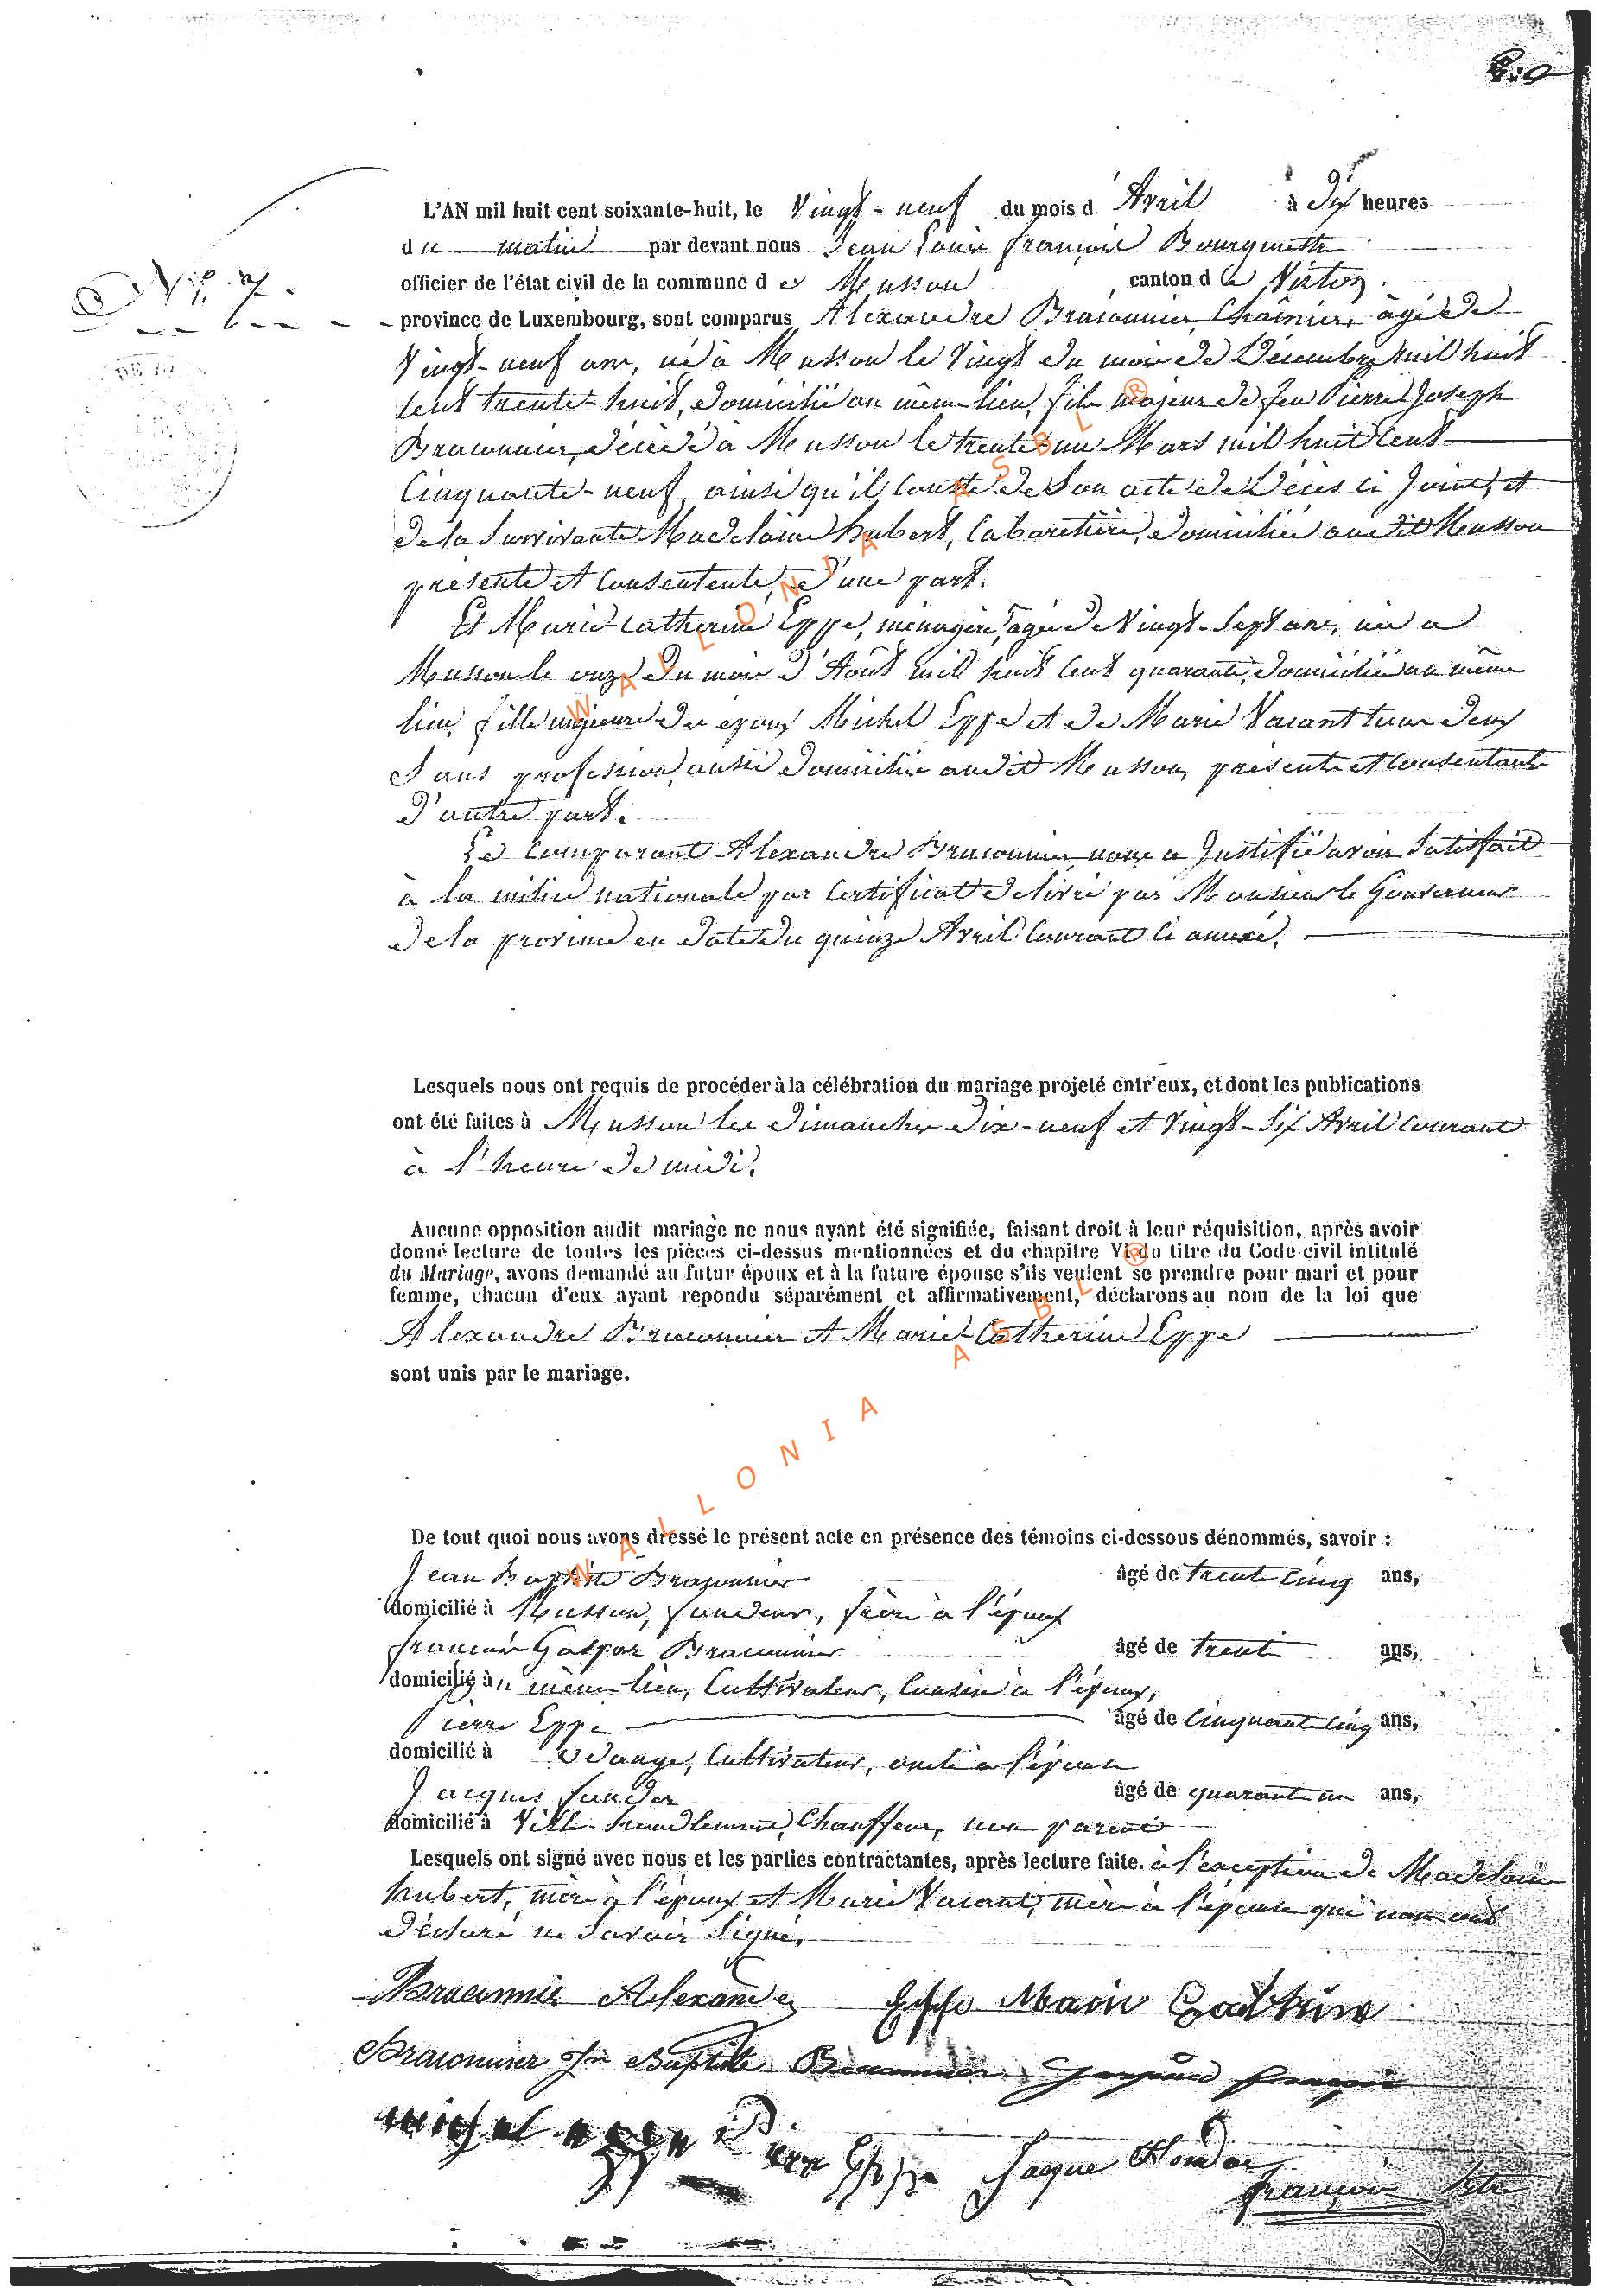 N° 7.
L'AN mil huit cent soixante-huit, le Vingt-neuf du mois d'Avril à Dix heures
du matin par devant nous Jean Louis François Bourguette
officier de l'état civil de la commune de Musson canton de Virton
province de Luxembourg, sont comparus Alexandre Braconnier, Chaînier, âgé de
Vingt-neuf ans, né à Musson le Vingt du mois de Décembre mil huit
cent trente-huit, domicilié au même lieu, fils majeur de feu Pierre Joseph
Braconnier, décédé à Musson le trente un Mars mil huit cent
Cinquante-neuf, ainsi qu'il conste de son acte de Décès ci joint, et
de la survivante Madelaine hubert, Cabaretière, domiciliée audit Musson
présente et consentente, d'une part.
Et Marie-Catherine Eppe, ménagère, âgée de Vingt-Sept ans, née à
Musson le onze du mois d'Août mil huit cent quarante, domiciliée au même
lieu, fille majeure des époux Michel Eppe et de Marie Vacant tous deux
Sans profession, aussi domiciliés audit Musson, présents et consentants
d'autre part.
Le Comparant Alexandre Braconnier nous a Justifié avoir Satisfait
à la milice nationale par Certificat délivré par Monsieur le Gouverneur
de la province en date du quinze Avril Courant ci annexé.
Lesquels nous ont requis de procéder à la célébration du mariage projeté entr'eux, et dont les publications
ont été faites à Musson les Dimanches dix-neuf et vingt-Six Avril courant
à l'heure de midi.
Aucune opposition audit mariage ne nous ayant été signifiée, faisant droit à leur réquisition, après avoir
donné lecture de toutes les pièces ci-dessus mentionnées et du chapitre VI du titre du Code civil intitulé
du Mariage, avons demandé au futur époux et à la future épouse s'ils veulent se prendre pour mari et pour
femme, chacun d'eux ayant repondu séparément et affirmativement, déclarons au nom de la loi que
Alexandre Braconnier et Marie-Catherine Eppe
sont unis par le mariage.
De tout quoi nous avons dressé le présent acte en présence des témoins ci-dessous dénommés, savoir :
Jean Baptiste Braconnier âgé de trente cinq ans,
domicilié à Musson, fondeur, frère à l'époux
françois Gaspar Braconnier âgé de trente ans,
domicilié au même lieu, Cultivateur, Cousin à l'époux,
Pierre Eppe âgé de Cinquante cinq ans,
domicilié à Udange, Cultivateur, oncle à l'épouse
Jacques âgé de quarante un ans,
domicilié à Ville-houdlemont, Chauffeur, non parent
Lesquels ont signé avec nous et les parties contractantes, après lecture faite. à l'exception de Madelaine
hubert, mère à l'époux et Marie Vacant, mère à l'épouse qui nous ont
déclaré ne savoir signé.
Braconnier Alexandre Eppe Marie Catrine
Braconnier Jn Baptiste Braconnier françois
michel eppe Pierre Eppe Jaque
françois
WALLONIA ASBL ®
WALLONIA ASBL ®